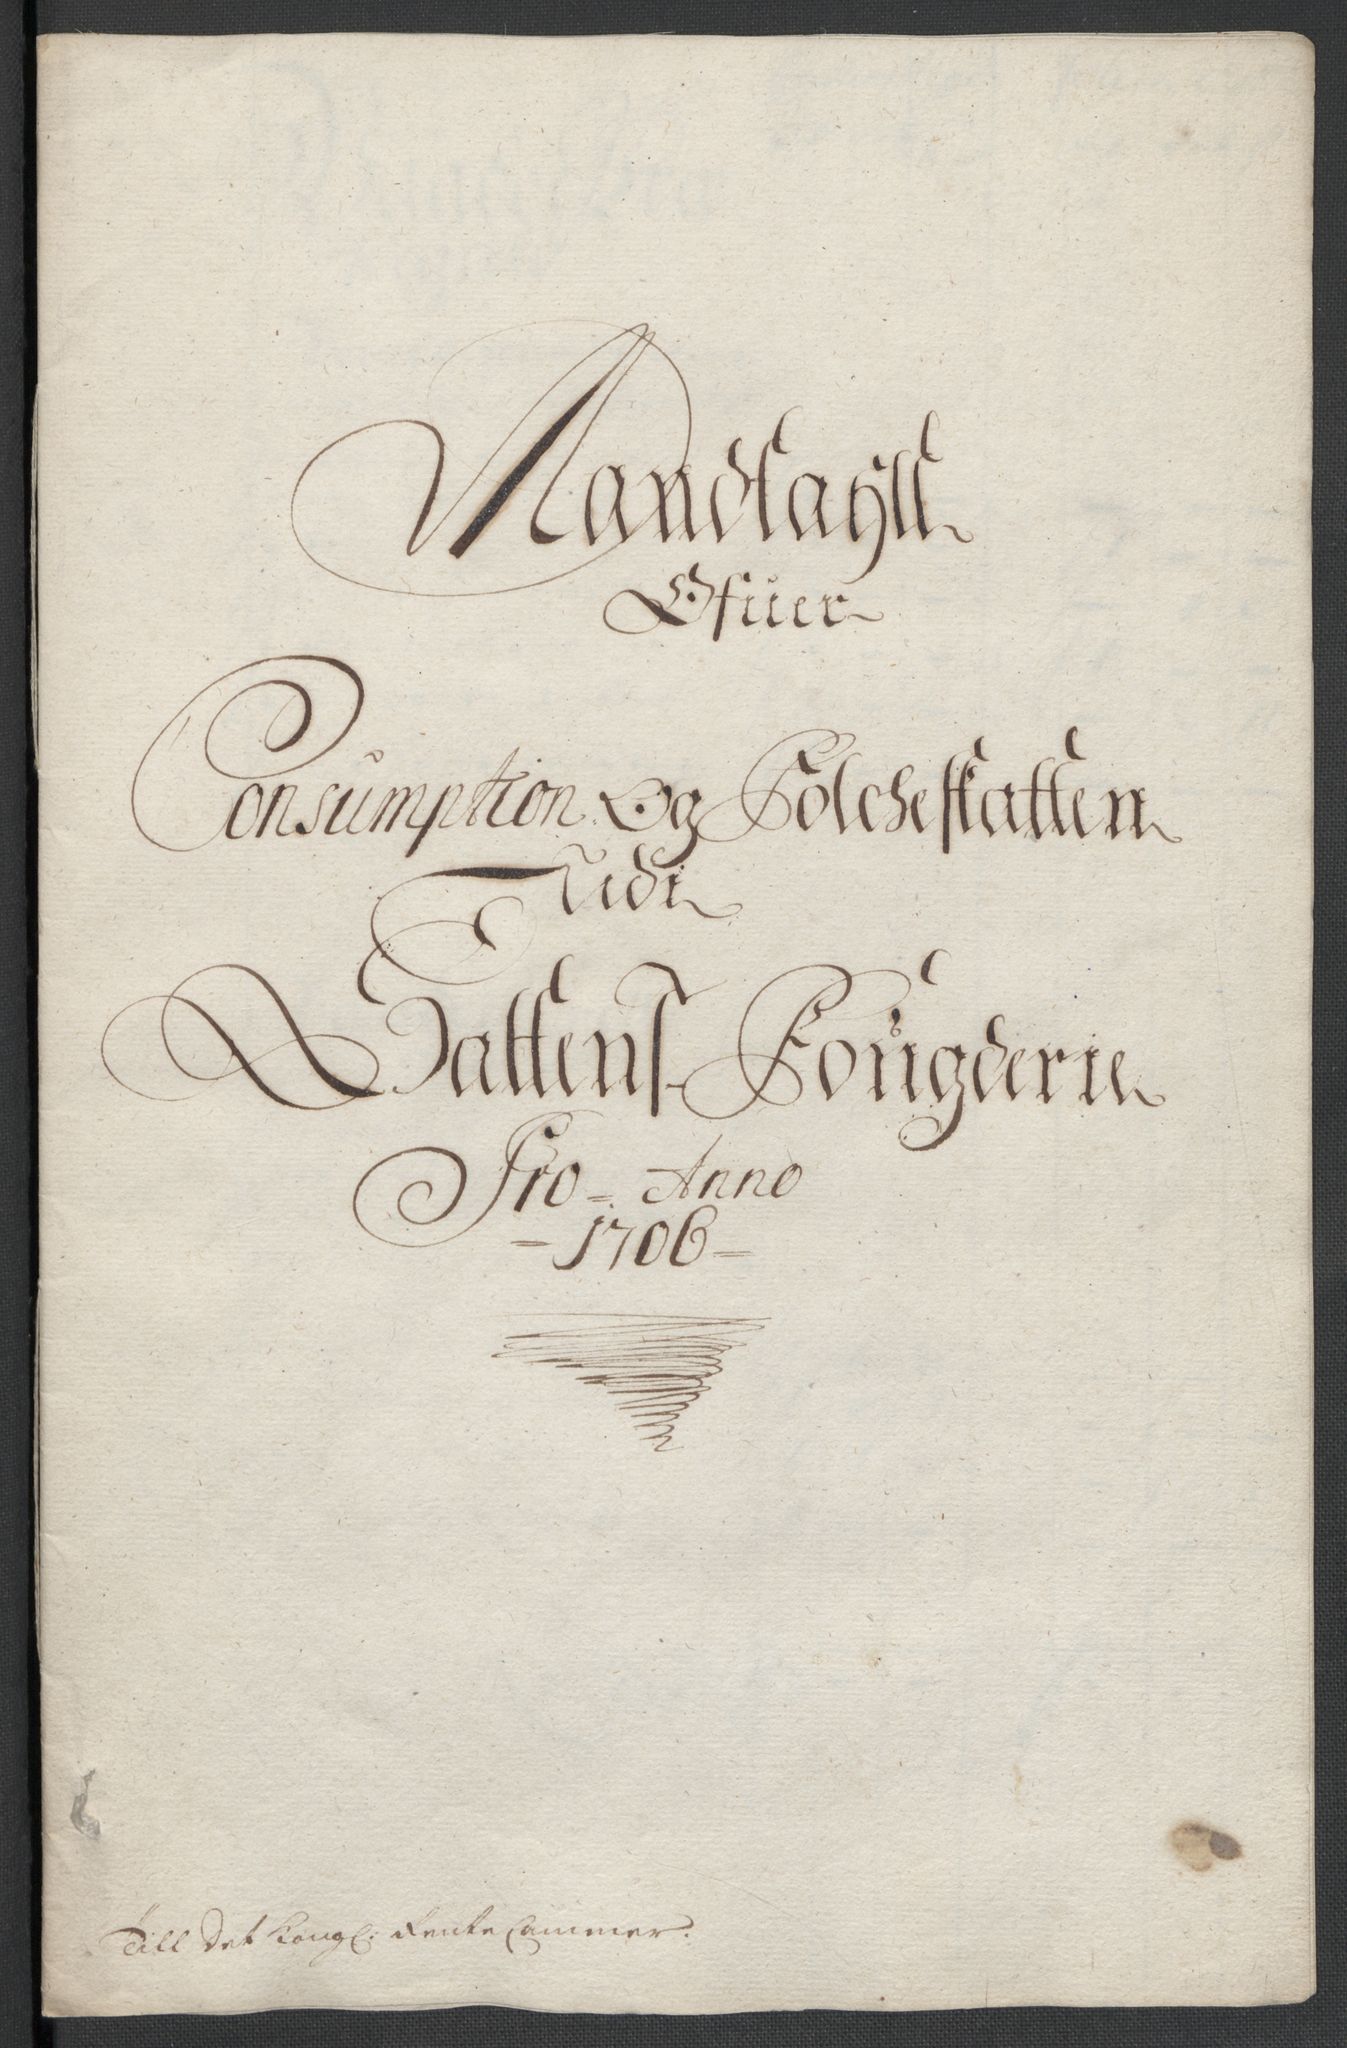 Mandtahll
Ofuer
Consumption Og Folcheskatten
Udi
Fougderie
Pro = Anno
= 1706 =
Till Det Kongl: Rente Cammer.